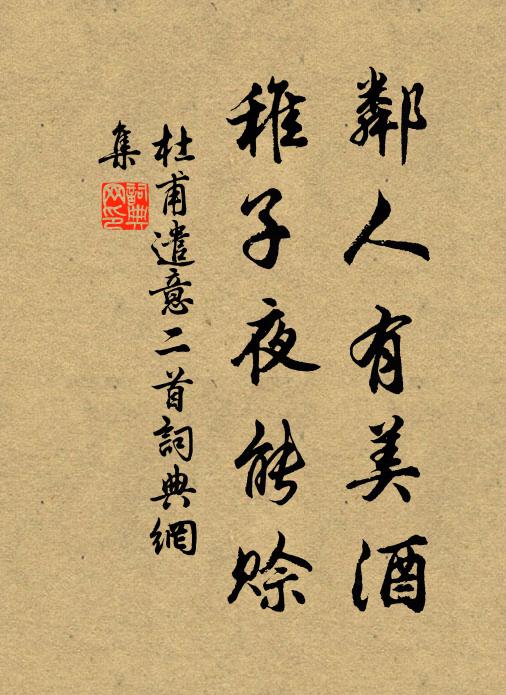 鄰人有美酒
稚子夜能賒
杜甫遣意二首詞典網
集
詞典网印